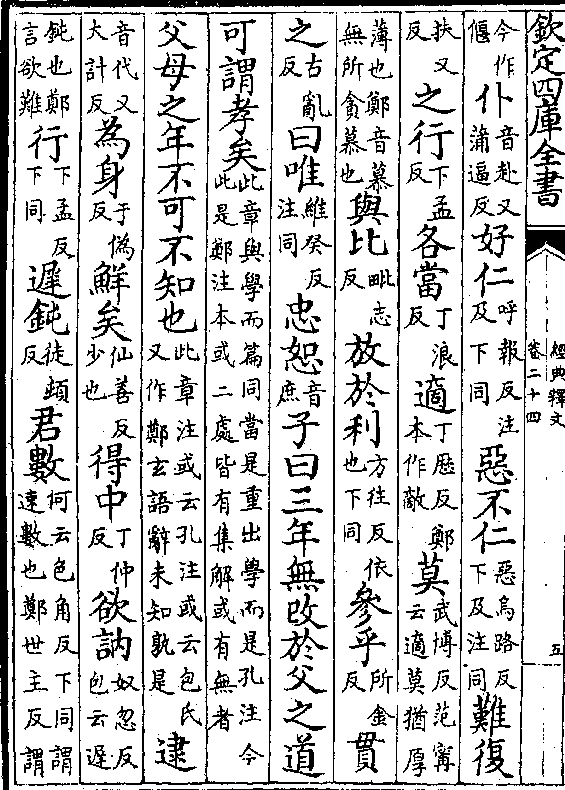 欽定四庫全書
經典釋文
卷二十四
五
今作偃仆音赴又蒲逼反好仁呼報反注及下同惡不仁惡烏路反下及注同難復
扶又反之行下孟反各當丁浪反適丁歷反鄭本作敵莫武博反范甯云適莫猶厚
薄也鄭音慕無所貪慕也與比毗志反放於利方往反依也下同參乎所金反貫
之古亂反曰唯維癸反注同忠恕音庶子曰三年無改於父之道
可謂孝矣此章與學而篇同當是重出學而是孔注今此是鄭注本或二處皆有集解或有無者
父母之年不可不知也此章注或云孔注或云包氏又作鄭玄語辭未知孰是逮
音代又大計反為身于偽反鮮矣仙善反少也得中丁仲反欲訥奴忽反包云遲
鈍也鄭言欲難行下孟反下同遲鈍徒頓反君數何云色角反下同謂速數也鄭世主反謂